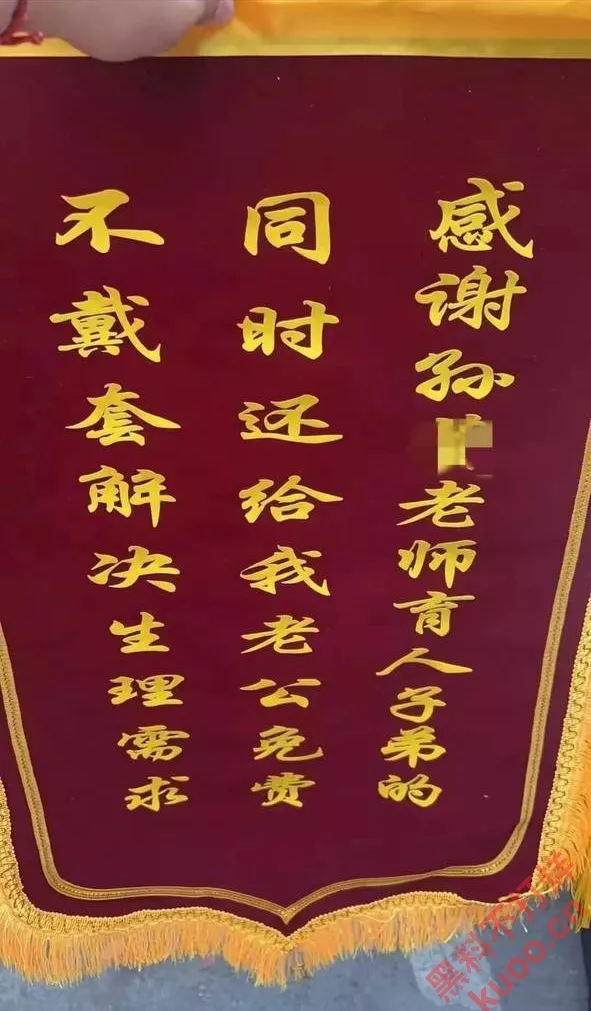 感谢孙老师育人子弟的
同时还给我老公免费
不戴套解决生理需求
黑料不打烊
kuoo.cn